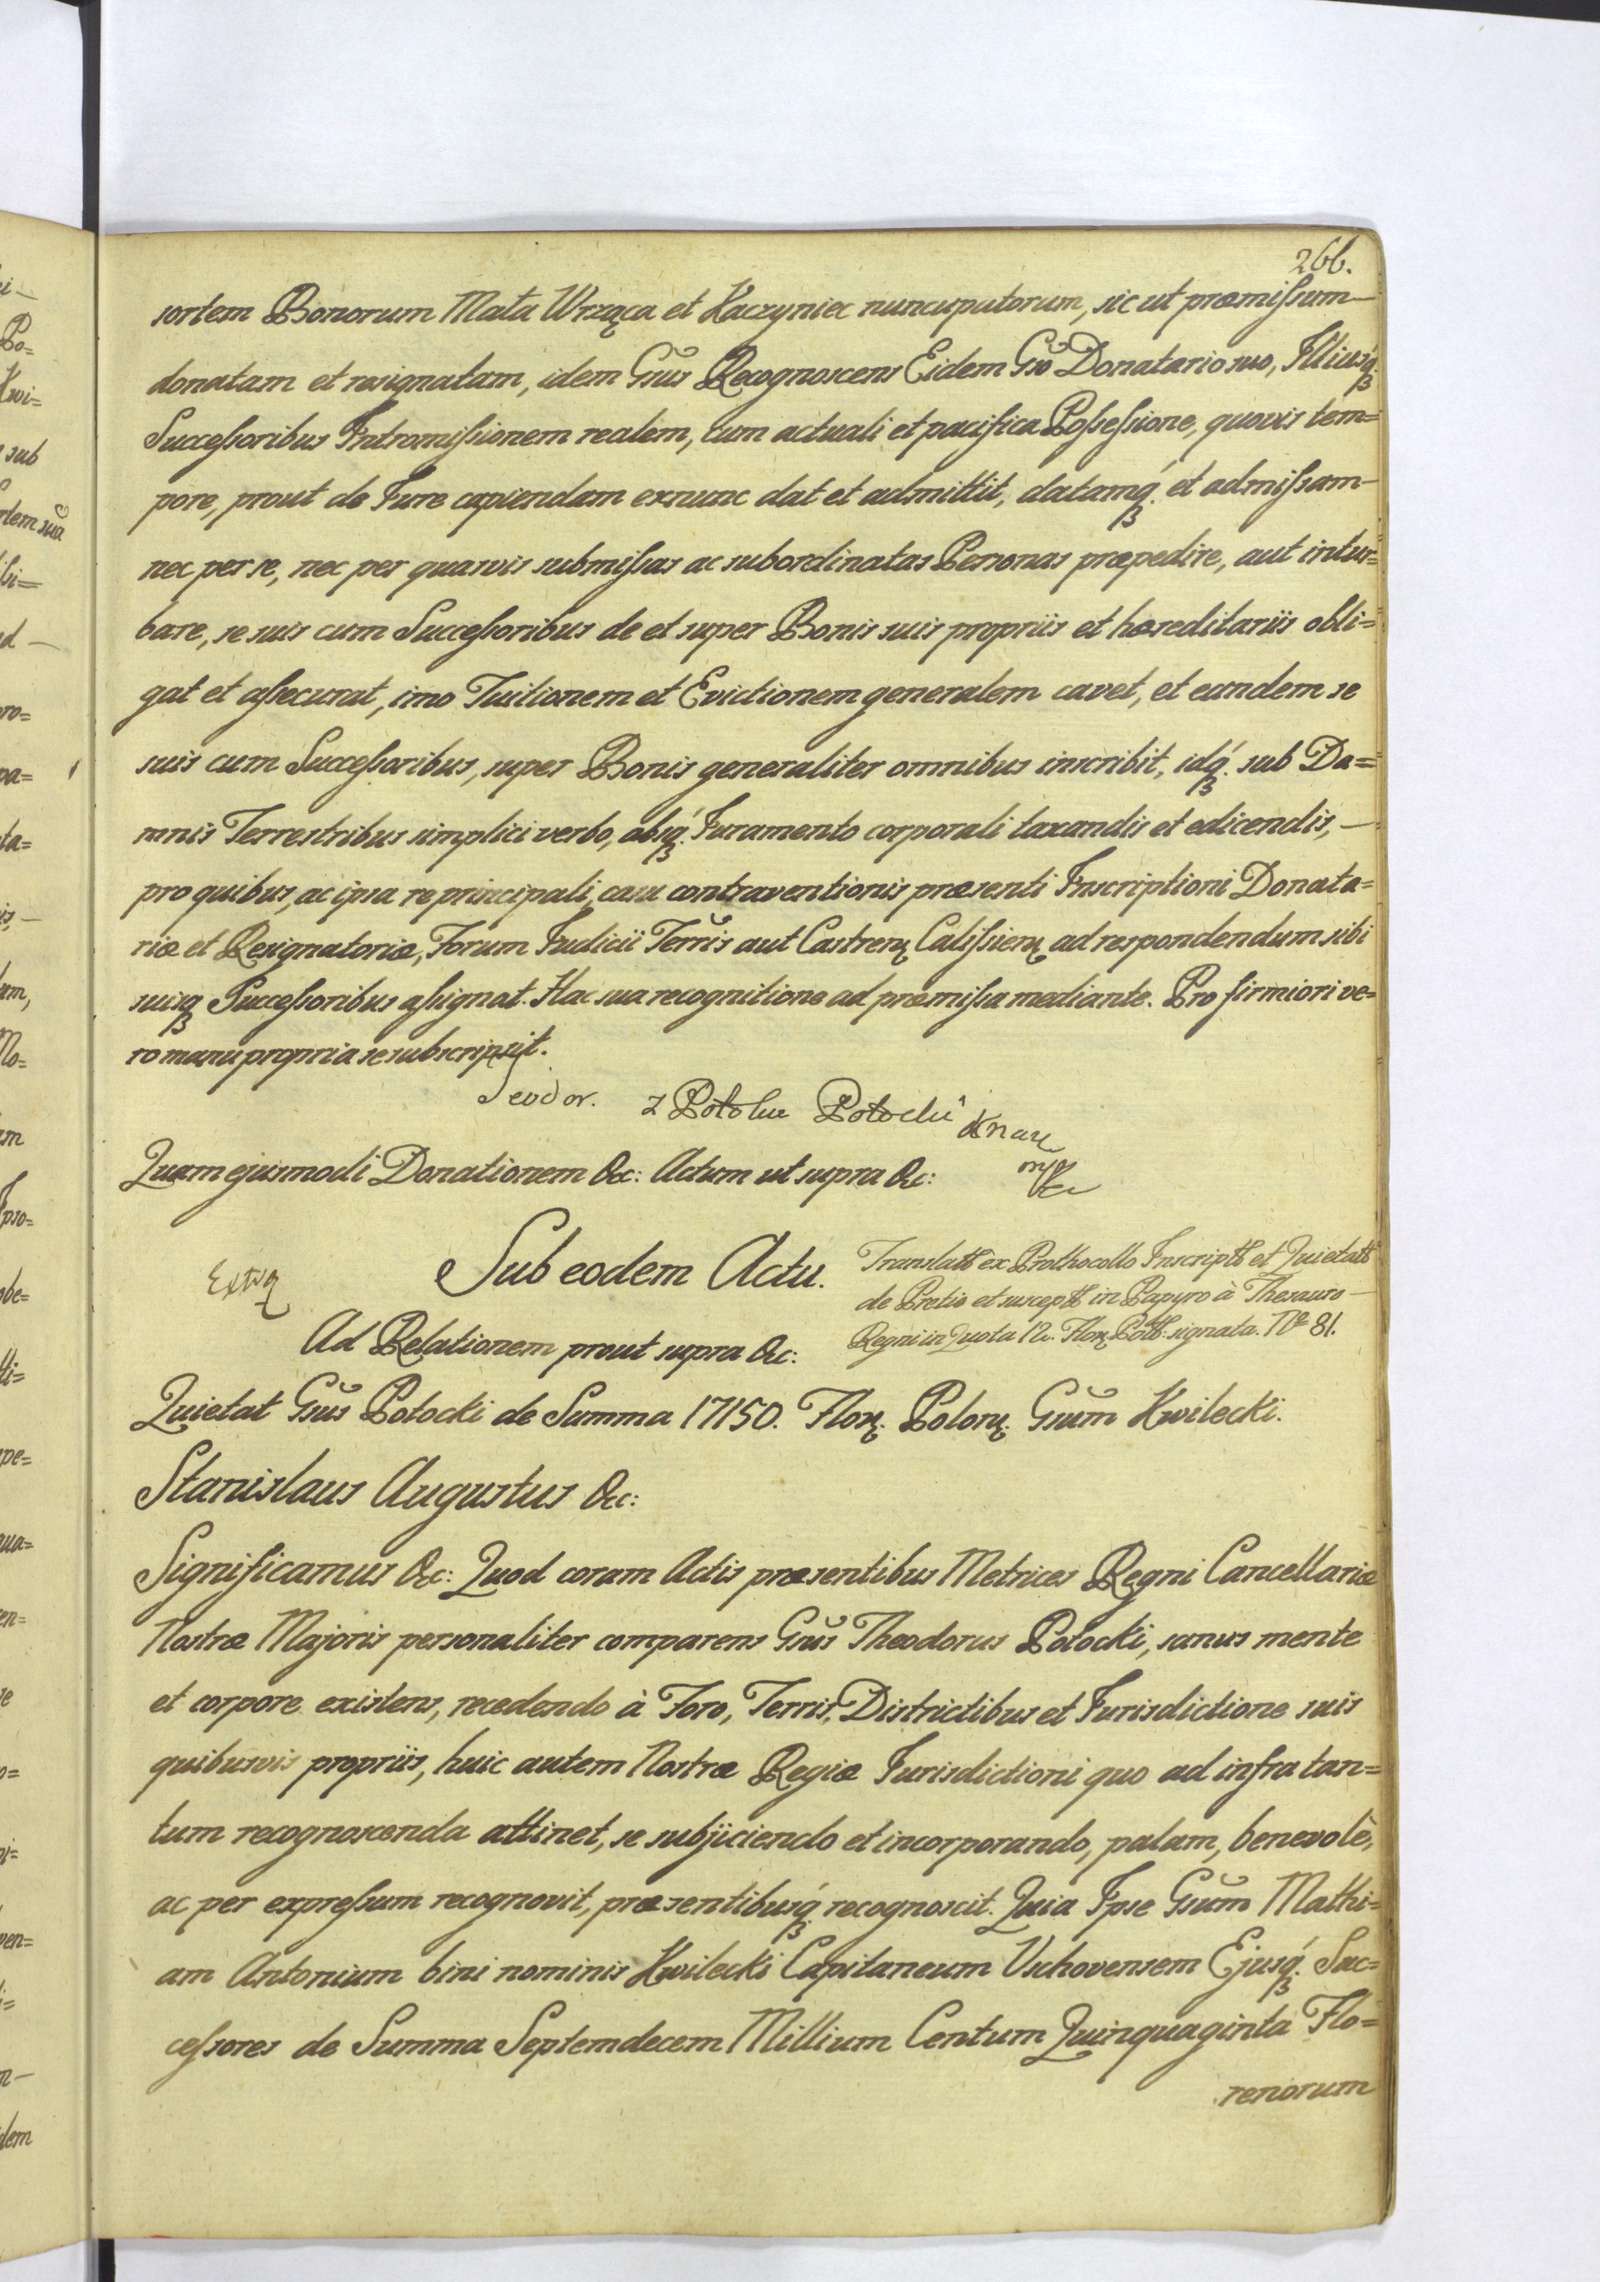 266.
sortem Bonorum Mała Wrząca et Kaczyniec nuncupatorum, sic ut præmissum—
donatam et resignatam, idem Gsus Recognoscens Eidem Gso Donatario suo, Illiusq́.
Successoribus Intromissionem realem, cum actuali et pacifica Possessione, quovis tem=
pore, prout de Jure capiendam exnunc dat et admittit, datamq́. et admissam—
nec per se, nec per quasvis submissas ac subordinatas Personas præpedire, aut intur=
bare, se suis cum Successoribus de et super Bonis suis propriis et hæreditariis obli=
gat et assecurat, imo Tuitionem et Evictionem generalem cavet, et eandem se
suis cum Successoribus, super Bonis generaliter omnibus inscribit, idq́. sub Da=
mnis Terrestribus simplici verbo, absq́. Juramento corporali taxandis et edicendis,—
pro quibus, ac ipsa re principali, casu contraventionis præsenti Inscriptioni Donato=
riæ et Resignatoriæ, Forum Judicii Terris aut Castren. Calissien. ad respondendum sibi
suisq Successoribus assignat. Hac sua recognitione ad præmissa mediante. Pro firmiori ve=
ro manu propria se subscripsit.
Teodor. z Potoka Potocki
Quam ejusmodi Donationem &c: Actum ut supra &c:
Sub eodem Actu.
Translatt ex Prothocollo Inscriptt et Quietatt
de Pretio et susceptt in Papyro à Thesauro—
Regni in Quota 12. Flor. Poltt. signata. No 81.
Ad Relationem prout supra &c:
Quietat Gsus Potocki de Summa 17150. Flor. Polon. Gsum Kwilecki.
Stanislaus Augustus &c:
Significamus &c: Quod coram Actis præsentibus Metrices Regni Cancellariæ
Nostræ Majoris personaliter comparens Gsus Theodorus Potocki, sanus mente
et corpore existens, recedendo à Foro, Terris, Districtibus et Jurisdictione suis
quibusvis propriis, huic autem Nostræ Regiæ Jurisdictioni quo ad infra tan=
tum recognoscenda attinet, se subjiciendo et incorporando, palam, benevolè,
ac per expressum recognovit, præsentibusq́. recognoscit. Quia Ipse Gsum Mathi=
am Antonium bini nominis Kwilecki Capitaneum Vschovensem Ejusq́. Suc=
cessores de Summa Septemdecem Millium Centum Quinquaginta Flo=
renorum